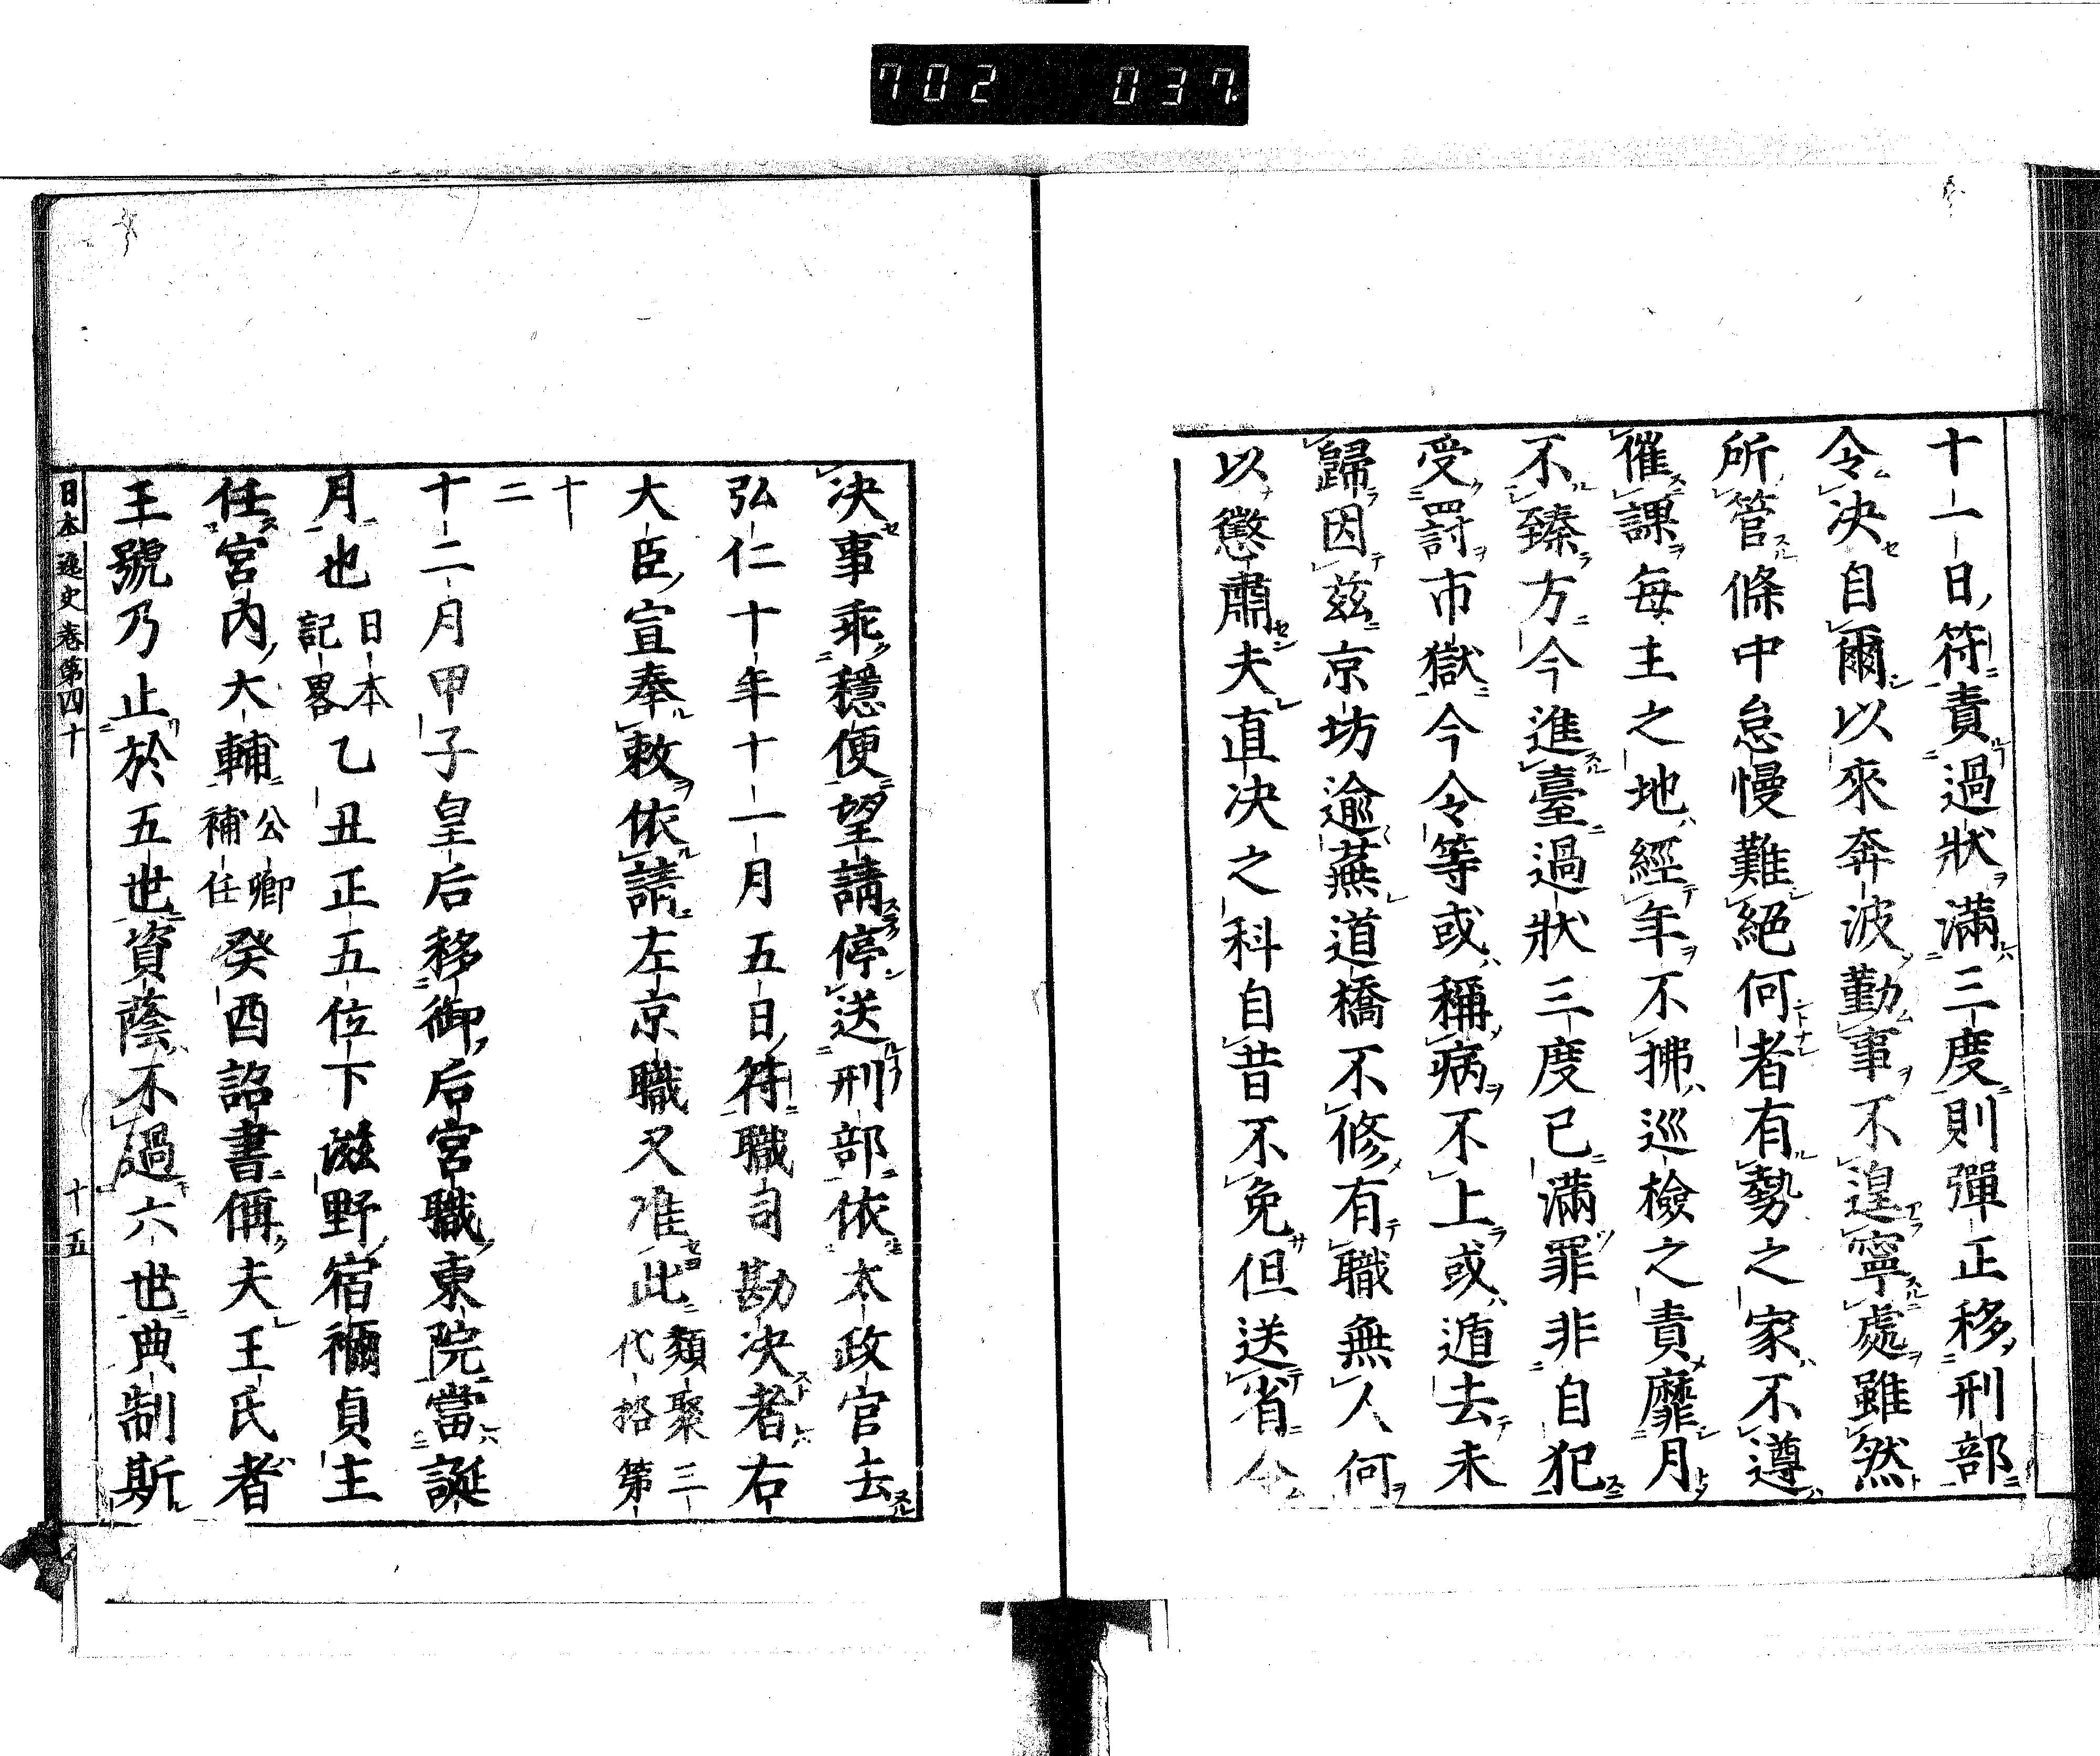 702 037
十一日符責過狀滿三度則彈正移刑部
令決自爾以來奔波勤事不遑寧處雖然
所管條中怠慢難絕何者有勢之家不遵
催課每主之地經年不拂巡檢之責靡月
不臻方今進臺過狀三度已滿罪非自犯
受罸市獄今令等或稱病不上或遁去未
歸因茲京坊逾蕪道橋不修有職無人何
以懲肅夫直決之科自昔不免但送省令
決事乖穩便望請停送刑部依本政官去
弘仁十年十一月五日符職司勘決者右
大臣宣奉敕依請左京職又准此類聚三代格第
十
二
十二月甲子皇后移御后宮職東院當誕
月也日本記畧乙丑正五位下滋野宿禰貞主
任宮內大輔公卿補任癸酉詔書偁夫王氏者
王號乃止於五世資蔭不過六世典制斯
日本逸史卷第四十 十五